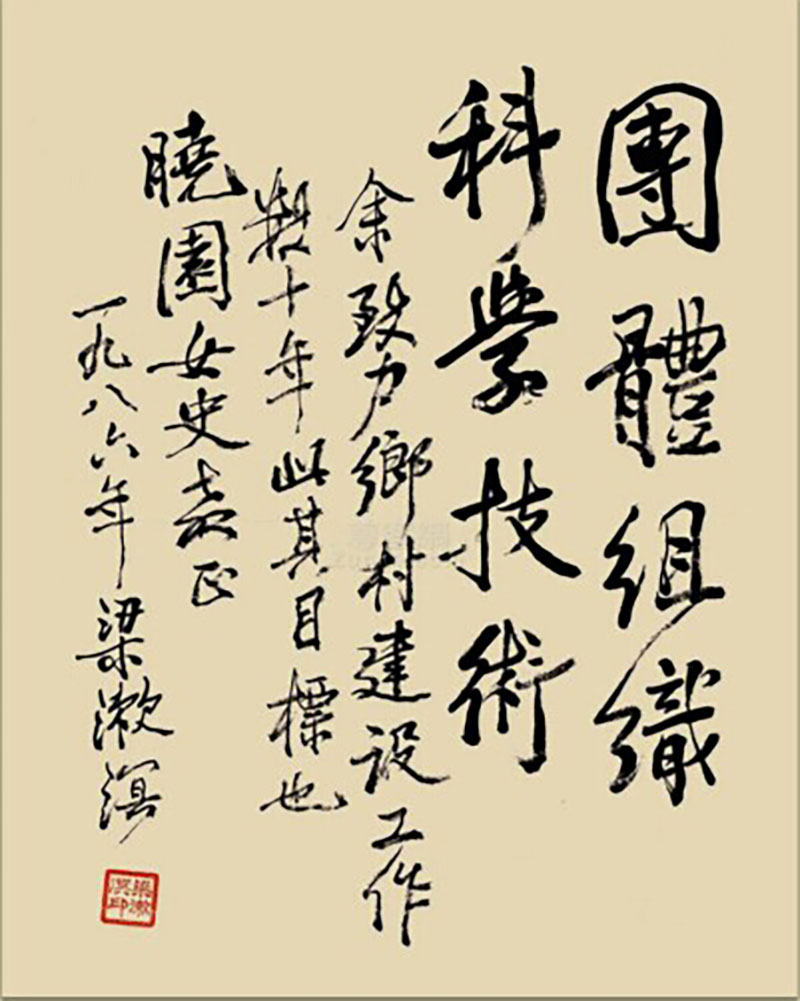 團體組織
科學技術
余致力鄉村建设工作
数十年此其目標也
曉園女史嘉正
一九八六年 梁漱溟
梁漱溟印